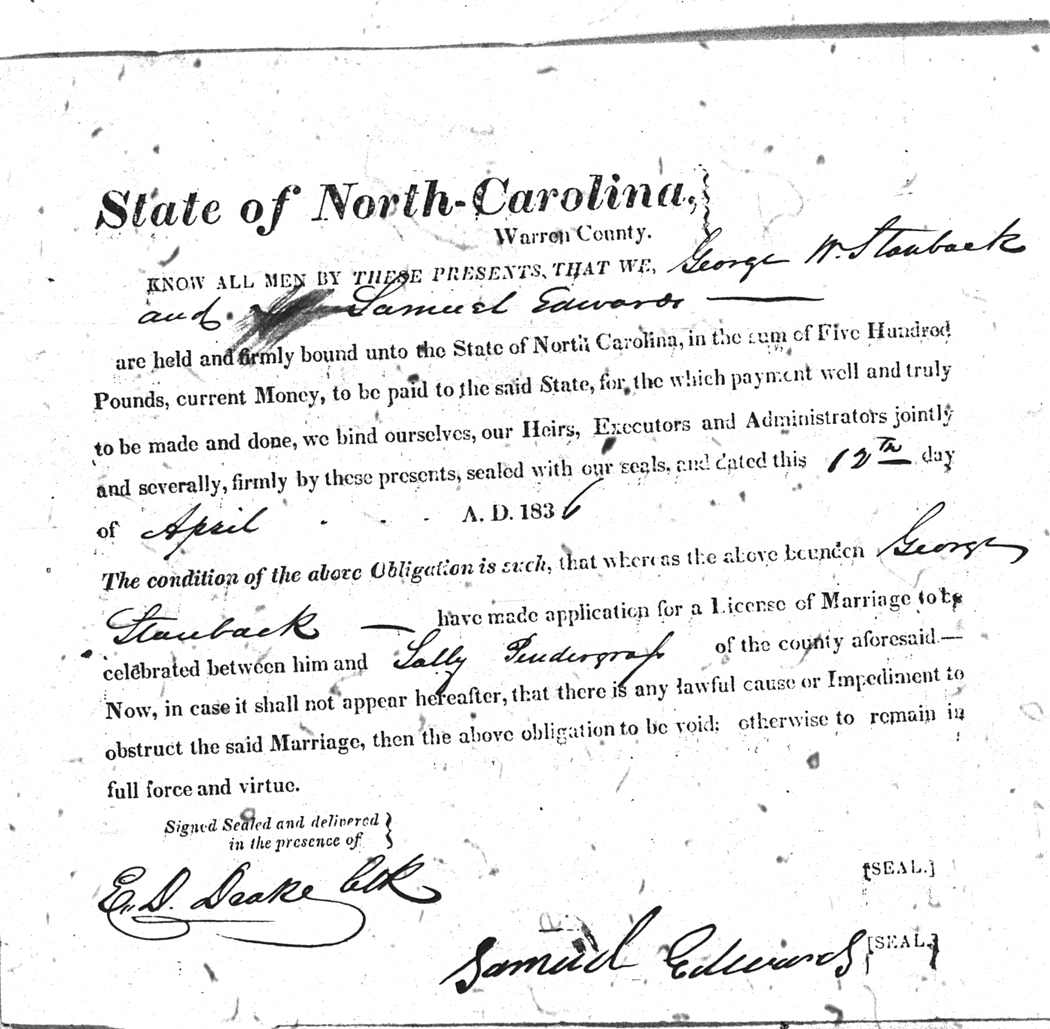 State of North-Carolina,
Warren County.
KNOW ALL MEN BY THESE PRESENTS, THAT WE, George W. Stanback
and Samuel Edwards
are held and firmly bound unto the State of North Carolina, in the sum of Five Hundred
Pounds, current Money, to be paid to the said State, for the which payment well and truly
to be made and done, we bind ourselves, our Heirs, Executors and Administrators jointly
and severally, firmly by these presents, sealed with our seals, and dated this 12th day
of April A. D. 1836
The condition of the above Obligation is such, that whereas the above bounden George
Stanback — have made application for a License of Marriage to be
celebrated between him and Sally Pendergrass of the county aforesaid.—
Now, in case it shall not appear hereafter, that there is any lawful cause or Impediment to
obstruct the said Marriage, then the above obligation to be void; otherwise to remain in
full force and virtue.
Signed Sealed and delivered
in the presence of
E. D. Drake Clk
[SEAL.]
Samuel Edwards [SEAL.]